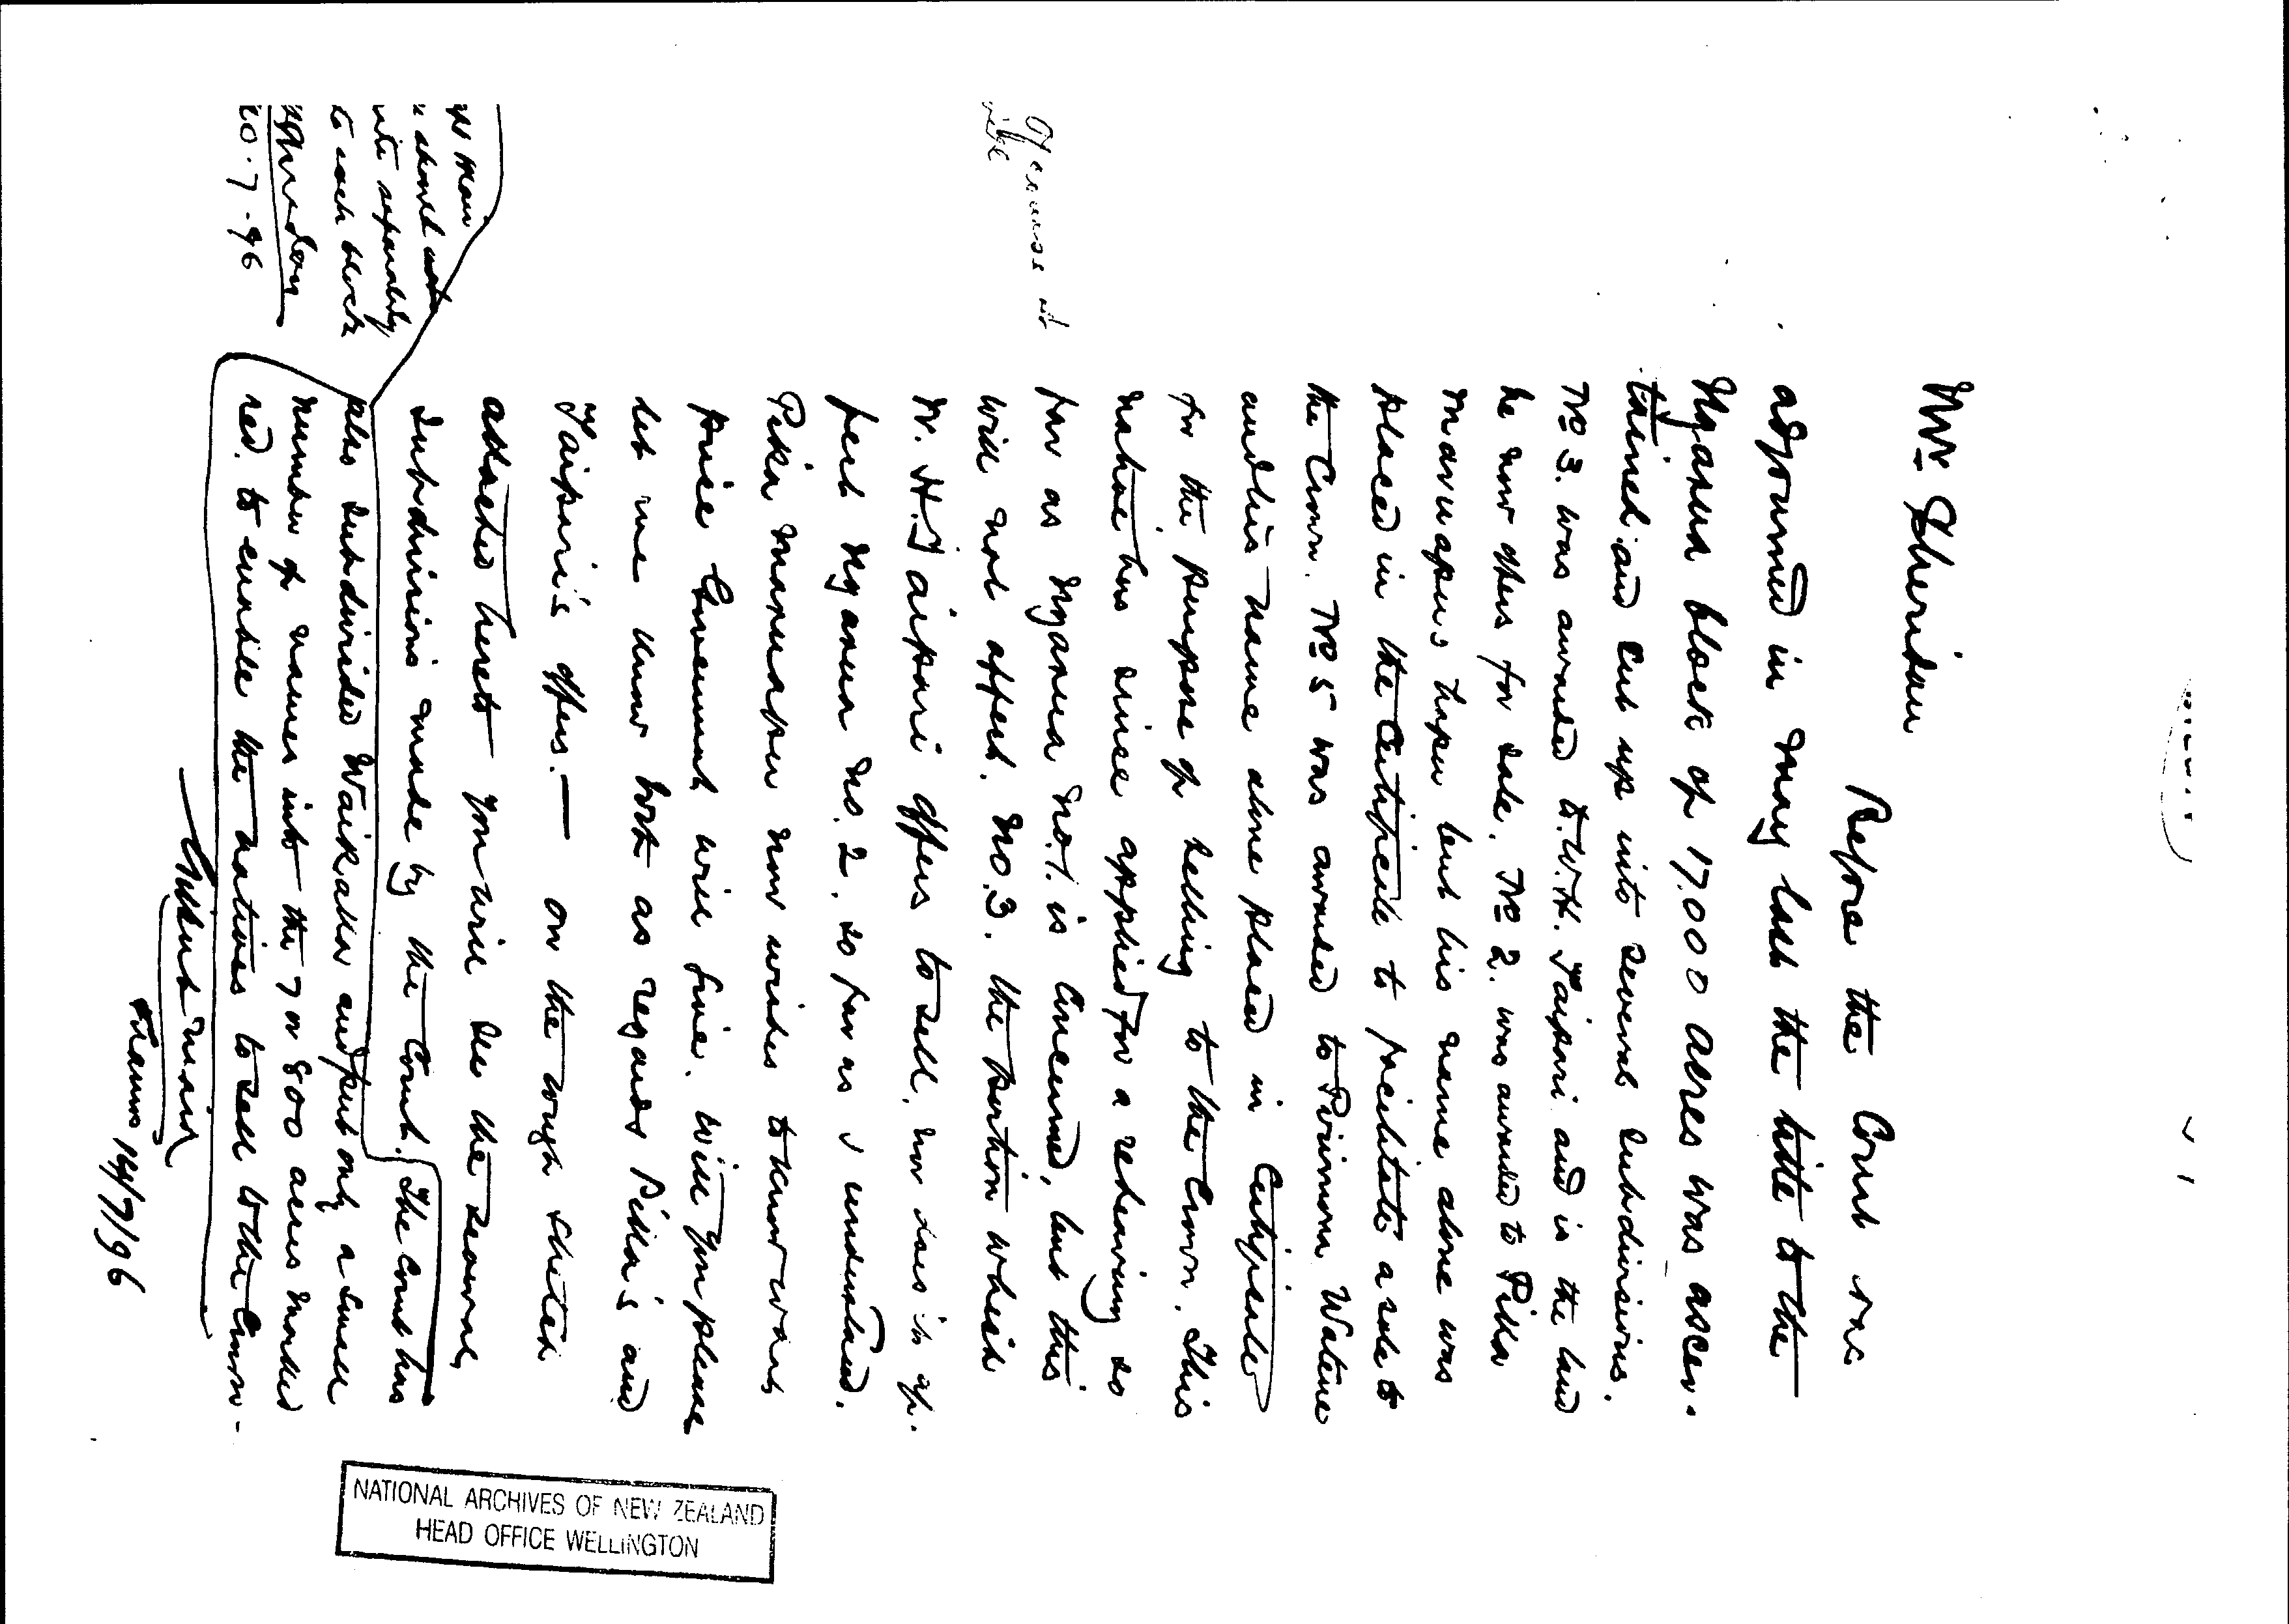 Mr Sheridan
Before the Court was
adjourned in May last the title to the
Ngarua block of 17.000 acres was ascer-
tained and cut up into several subdivisions.
No 3. was awarded to W.H. Taipari and is the land
he now offers for sale. No 2. was awarded to Pikia
placed in the Certificate to facilitate a sale to
the Crown. No 5 was awarded to Watene
and his name alone placed in Certificate
for the purpose of selling to the Crown. This
native has since applied for a rehearing so
far as Ngarua No.1. is concerned, but this
will not affect. No.3. the portion which
W. H. Taipari offers to sell, nor does it af.
fect Ngarua No. 2. so far as I understand.
now wishes to know what
price Government will give. Will you please
let me know both as regards and
Taipari's offers. — on the rough sketch
attached hereto you will see the several
subdivisions made by the Court. The Court has
also subdivided and put only a small
number of names into the 7 or 800 acres marked
red. to enable the natives to sell to the Crown -
Gilbert Mair
Thames 14/7/96
Mr Mair
should
write separately
to each block
20.7.96
NATIONAL ARCHIVES OF NEW ZEALAND
HEAD OFFICE WELLINGTON